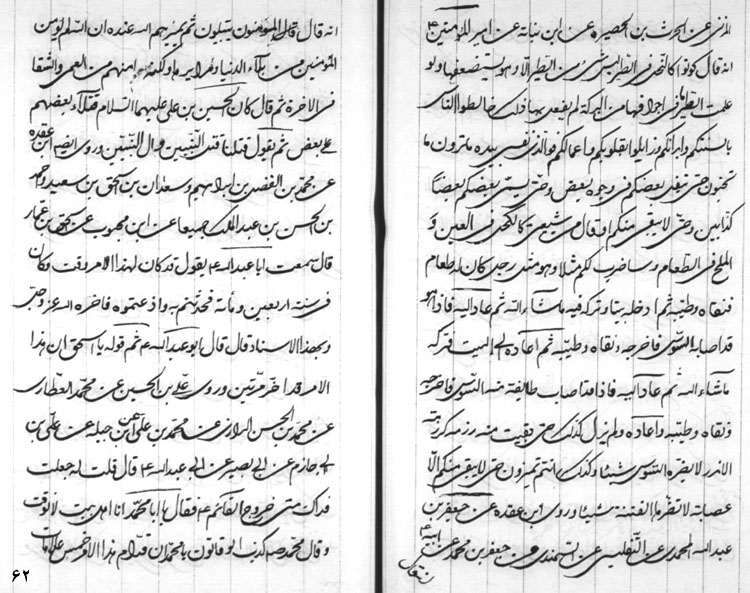 المزنى عن الحرث بن الحصيره عن ابن نباته عن امير المؤمنين ع
انه قال كونوا كالنحل فى الطير ليس شئ من الطير الا وهو يستضعفها ولو
علمت الطير ما فى اجوافها من البركة لم يفعل بها ذلك خالطوا الناس
بالسنتكم وابدانكم وزايلوا بقلوبكم واعمالكم فوالذى نفسى بيده ما ترون ما
تحبون حتى يتفل بعضكم فى وجوه بعض وحتى يسمى بعضكم بعضا
كذابين وحتى لا يبقى منكم او قال من شيعتى كالكحل فى العين و
الملح فى الطعام وساضرب لكم مثلا وهو مثل رجل كان له طعام
فنقاه وطيبه ثم ادخله بيتا وتركه فيه ما شاء الله ثم عاد اليه فاذا هو
قد اصابه السوس فاخرجه ونقاه وطيبه ثم اعاده الى البيت فتركه
ما شاء الله ثم عاد اليه فاذا قد اصاب طائفة منه السوس فاخرجه
ونقاه وطيبه واعاده ولم يزل كذلك حتى بقيت منه رزمة كرزمة
الاندر لا يضره السوس شيئا وكذلك انتم تميزون حتى لا يبقى منكم الا
عصابة لا تضرها الفتنة شيئا وروى ابن عقده عن جعفر بن
عبد الله المحمدى عن التفليسى عن السمندى عن جعفر بن محمد عن ابيه ع
انه قال قال المؤمنون يبتلون ثم يميزهم الله عنده ان الله لم يؤمن
المؤمنين من بلاء الدنيا ومرايرها ولكنه امنهم من العمى والشقا
فى الاخرة ثم قال كان الحسين بن على عليهما السلام قتلاه بعضهم
على بعض ثم يقول قتلانا قتلى النبيين وال النبيين وروى ايضا ابن عقده
عن محمد بن الفضل بن ابراهيم وسعدان بن اسحق بن سعيد واحمد
بن الحسن بن عبد الملك جميعا عن ابن محبوب عن اسحق بن عمار
قال سمعت ابا عبد الله ع يقول قد كان لهذا الامر وقت وكان
فى سنة اربعين ومائة فحدثتم به واذعتموه فاخره الله عز وجل
وبهذا الاسناد قال قال ابو عبد الله ع ثم قوله يا اسحق ان هذا
الامر قد اخر مرتين وروى على بن الحسين عن محمد العطار
عن محمد بن الحسن الرازى عن محمد بن على عن ابن جبله عن على بن
ابى حازم عن ابى بصير عن ابى عبد الله ع قال قلت له جعلت
فداك متى خروج القائم ع فقال يا ابا محمد انا اهل بيت لا نوقت
وقال محمد صه كذب الوقاتون يا محمد ان قدام هذا الامر خمس علامات
۶۲